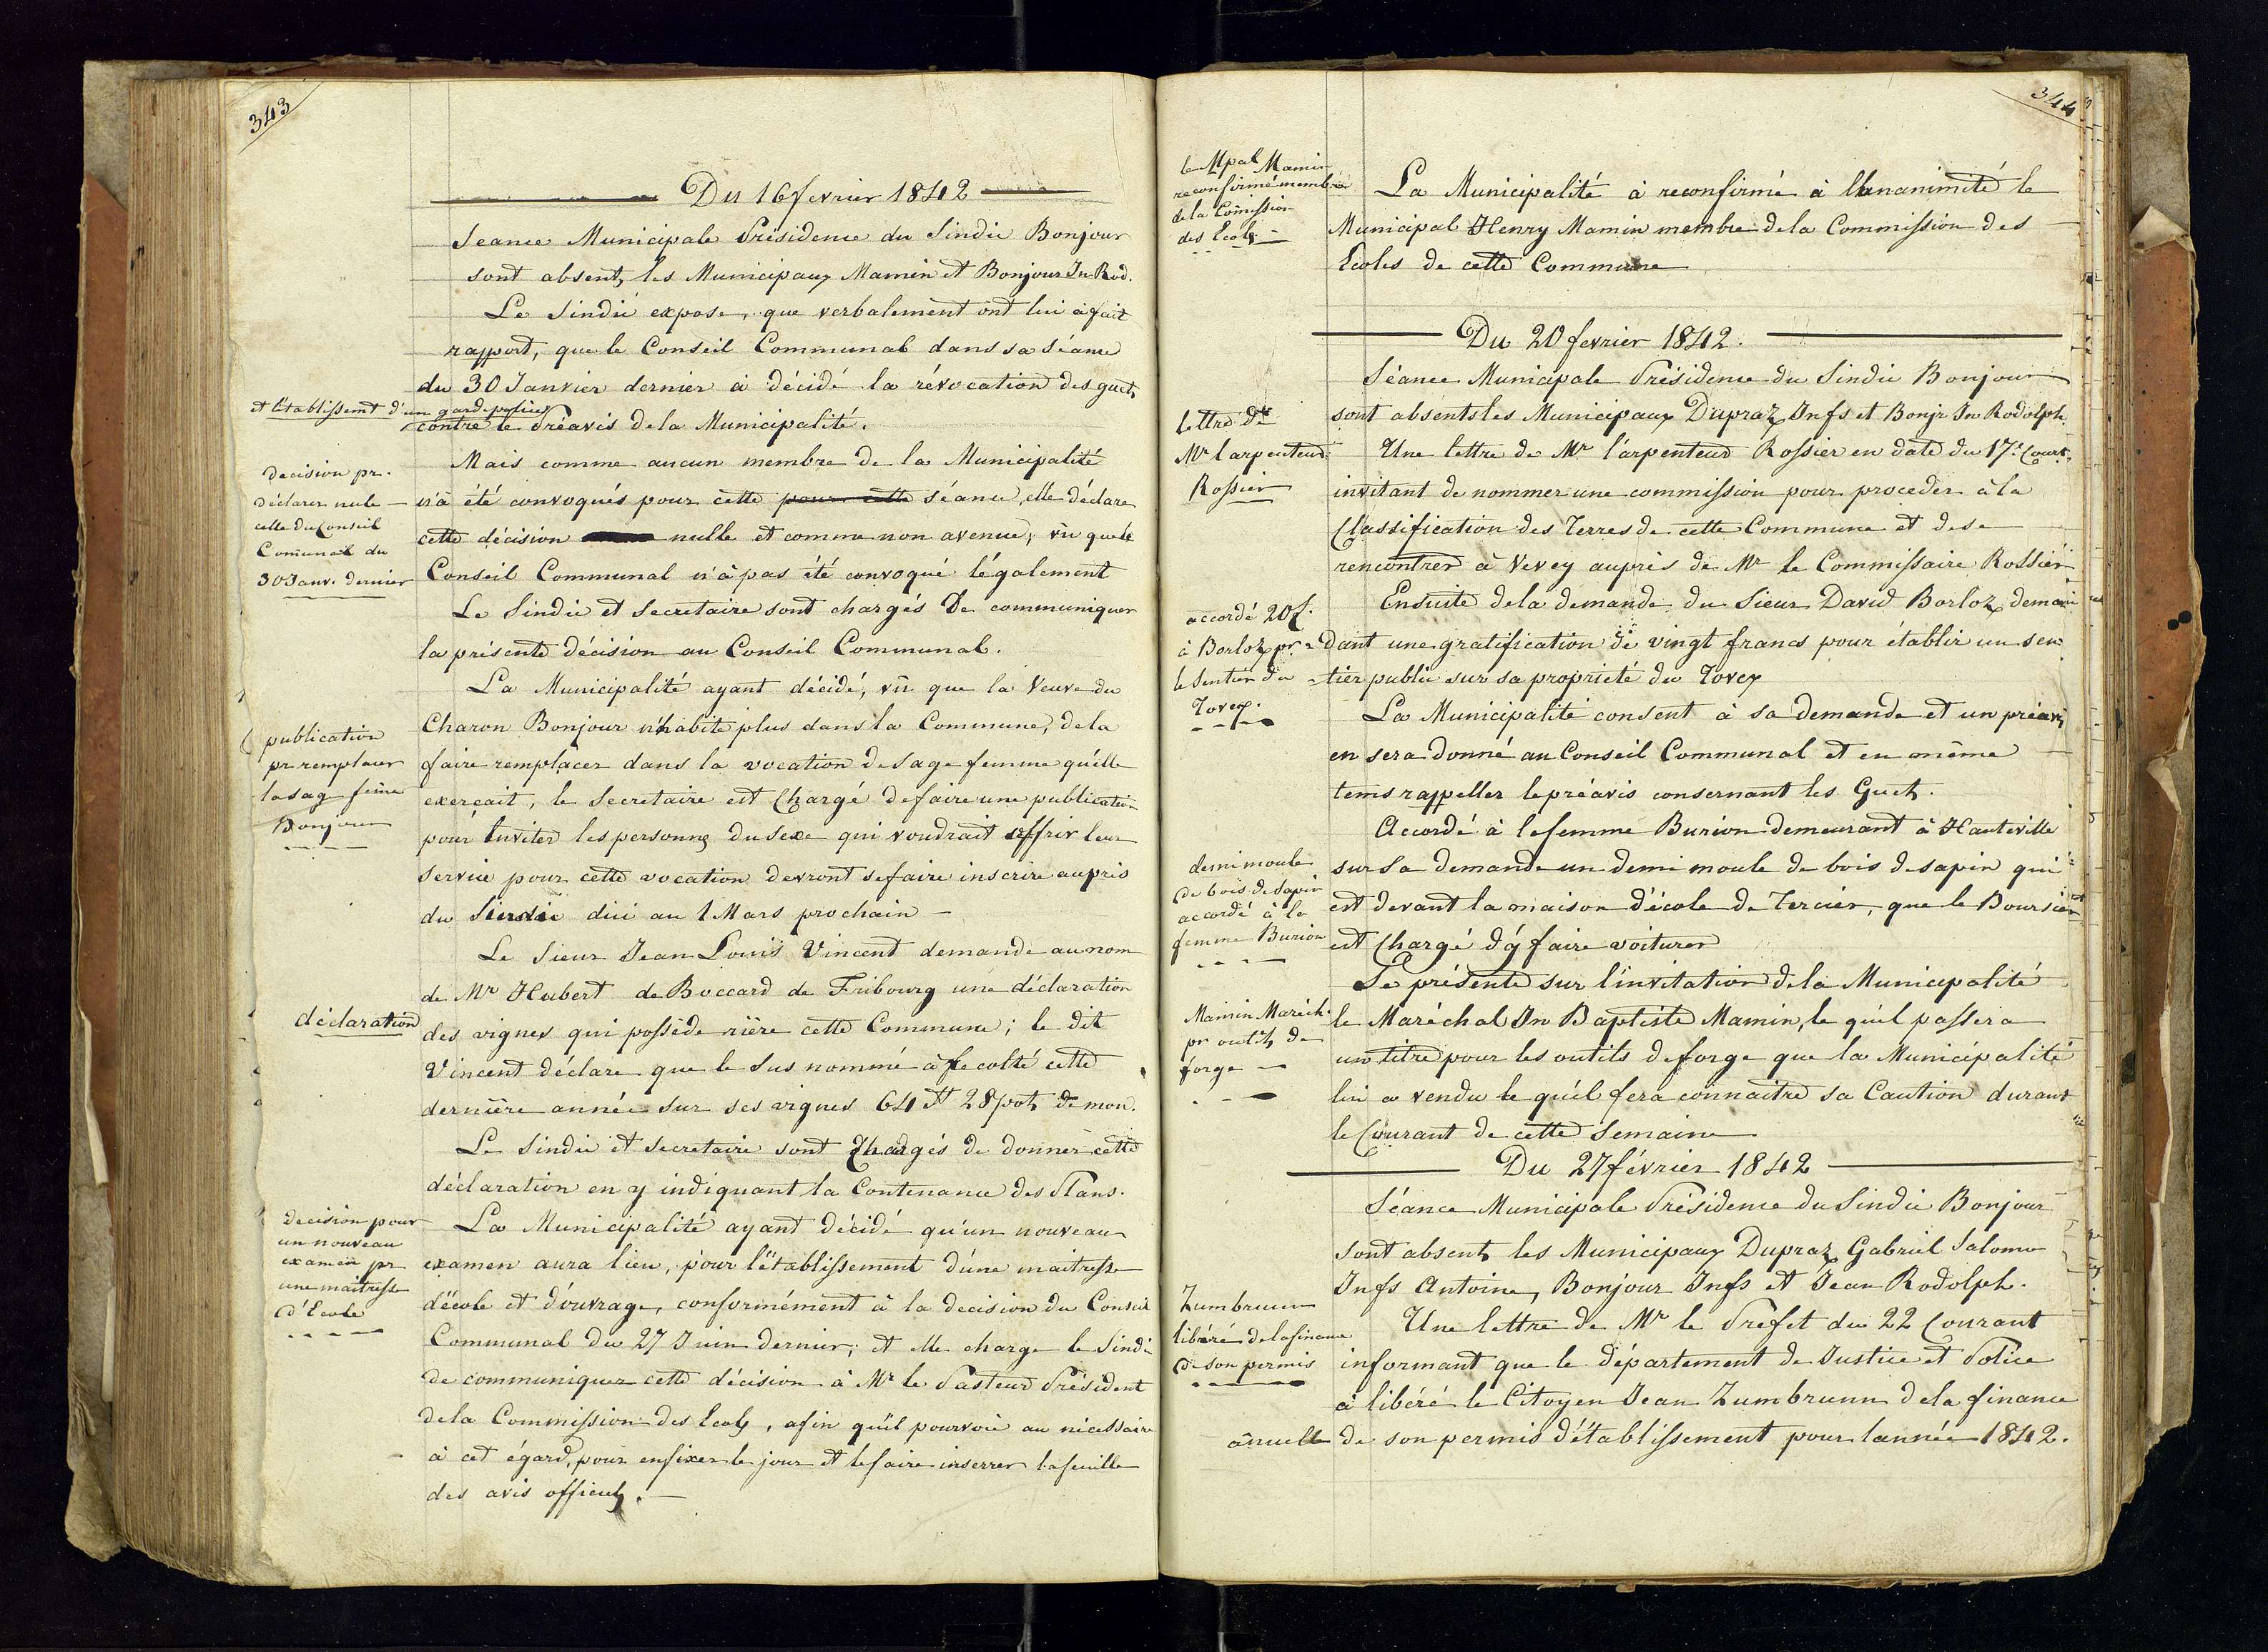 343
Du 16 fevrier 1842
Seance Municipale Présidence du Sindic Bonjour
sont absents les Municipaux Mamin et Bonjour Jn Rod.
Le Sindic expose, que verbalement ont lui a fait
rapport, que le Conseil Communal dans sa séance
du 30 Janvier dernier à décidé la révocation des guets
et l'établissemt d'un garde police
contre le Préavis de la Municipalité.
decision pr.
déclarer nule
celle du Conseil
Comunal du
30 Janv. dernier
Mais comme aucun membre de la Municipalité
n'a été convoqués pour cette pour cette séance, elle déclare
cette décision nulle et comme non avenue; vû que le
Conseil Communal n'à pas été convoqué légalement
Le Sindic et Secretaire sont chargés De communiquer
la présente décision au Conseil Communal.
publication
pr remplacer
la sag feme
Bonjour
La Municipalité ayant décidé, vû que la Veuve du
Charon Bonjour n'habite plus dans la Commune, de la
faire remplacer dans la vocation de sage femme qu'elle
exerçait, le Secretaire est Chargé de faire une publication
pour Inviter les personnes du sexe qui voudrait offrir leur
service pour cette vocation devront se faire inscrire auprès
du Sindic dici au 1 Mars prochain
déclaration
Le Sieur Jean Louis Vincent demande au nom
de Mr Hubert de Boccard de Fribourg une déclaration
des vignes qui possède rière cette Commune; le dit
Vincent déclare que le sus nommé à recolté cette
dernière année sur ses vignes 64 28 pots de mou.
Le Sindic et Secretaire sont Chargés de donner cette
déclaration en y indiquant la Contenance des Plans.
decision pour
un nouveau
examen pr
une maitresse
d'Ecole
La Municipalité ayant décidé qu'un nouveau
examen aura lieu, pour l'établissement d'une maitresse
d'école et d'ouvrage, conformément à la decision du Conseil
Communal du 27 Juin dernier; et elle charge le Sindic
de communiquer cette décision à Mr le Pasteur Président
de la Commission des Ecoles, afin qu'il pourvoie au nécessaire
à cet égard, pour en fixer le jour et le faire inserrer la feuille
des avis officiels.
344
le Mpal Mamin
reconfirmé membre
de la Comission
des Ecoles
La Municipalité à reconfirmé à l'Unanimité le
Municipal Henry Mamin membre de la Commission des
Ecoles de cette Commune
Du 20 fevrier 1842.
Séance Municipale Présidence du Sindic Bonjour
sont absents les Municipaux Dupraz Jnfs et Bonjr Jn Rodolph.
lettre de
Mr larpenteur
Rossier
Une lettre de Mr l'arpenteur Rossier en date du 17e Court,
invitant de nommer une commission pour proceder à la
Classification des Terres de cette Commune et de se
rencontrer à Vevey auprès de Mr le Commissaire Rossier
accordé 20 f.
à Borloz pr
le Sentier du
Tovex.
Ensuite de la demande du Sieur David Borloz deman
dant une gratification de vingt francs pour établir un sen
tier public sur sa propriété du Tovex
La Municipalité consent à sa demande et un préavis
en sera donné au Conseil Communal et en même
tems rappeller le préavis consernant les Guets.
demi moule
de bois de sapin
accordé à la
femme Burion
Accordé à la femme Burion demeurant à Hauteville
sur sa demande un demi moule de bois de sapin qui
est devant la maison d'école de Tercier, que le Boursier
est Chargé d'y faire voiturer
Mamin Maréch.
pr outils de
forge
Se présente sur l'invitation de la Municipalité
le Maréchal Jn Baptiste Mamin, le quel passera
un titre pour les outils de forge que la Municipalité
lui a vendu le quel fera connaitre sa Caution durant
le Courant de cette semaine
Du 27 février 1842
Séance Municipale Présidence du Sindic Bonjour
sont absents les Municipaux Dupraz Gabriel Salomo
Jnfs Antoine, Bonjour Jnfs et Jean Rodolph.
Zumbrunn
libéré de la finance
de son permis
Une lettre de Mr le Préfet du 22 Courant
informant que le département de Justice et Police
à libéré le Citoyen Jean Zumbrunn de la finance
anuelle de son permis d'établissement pour lannée 1842.